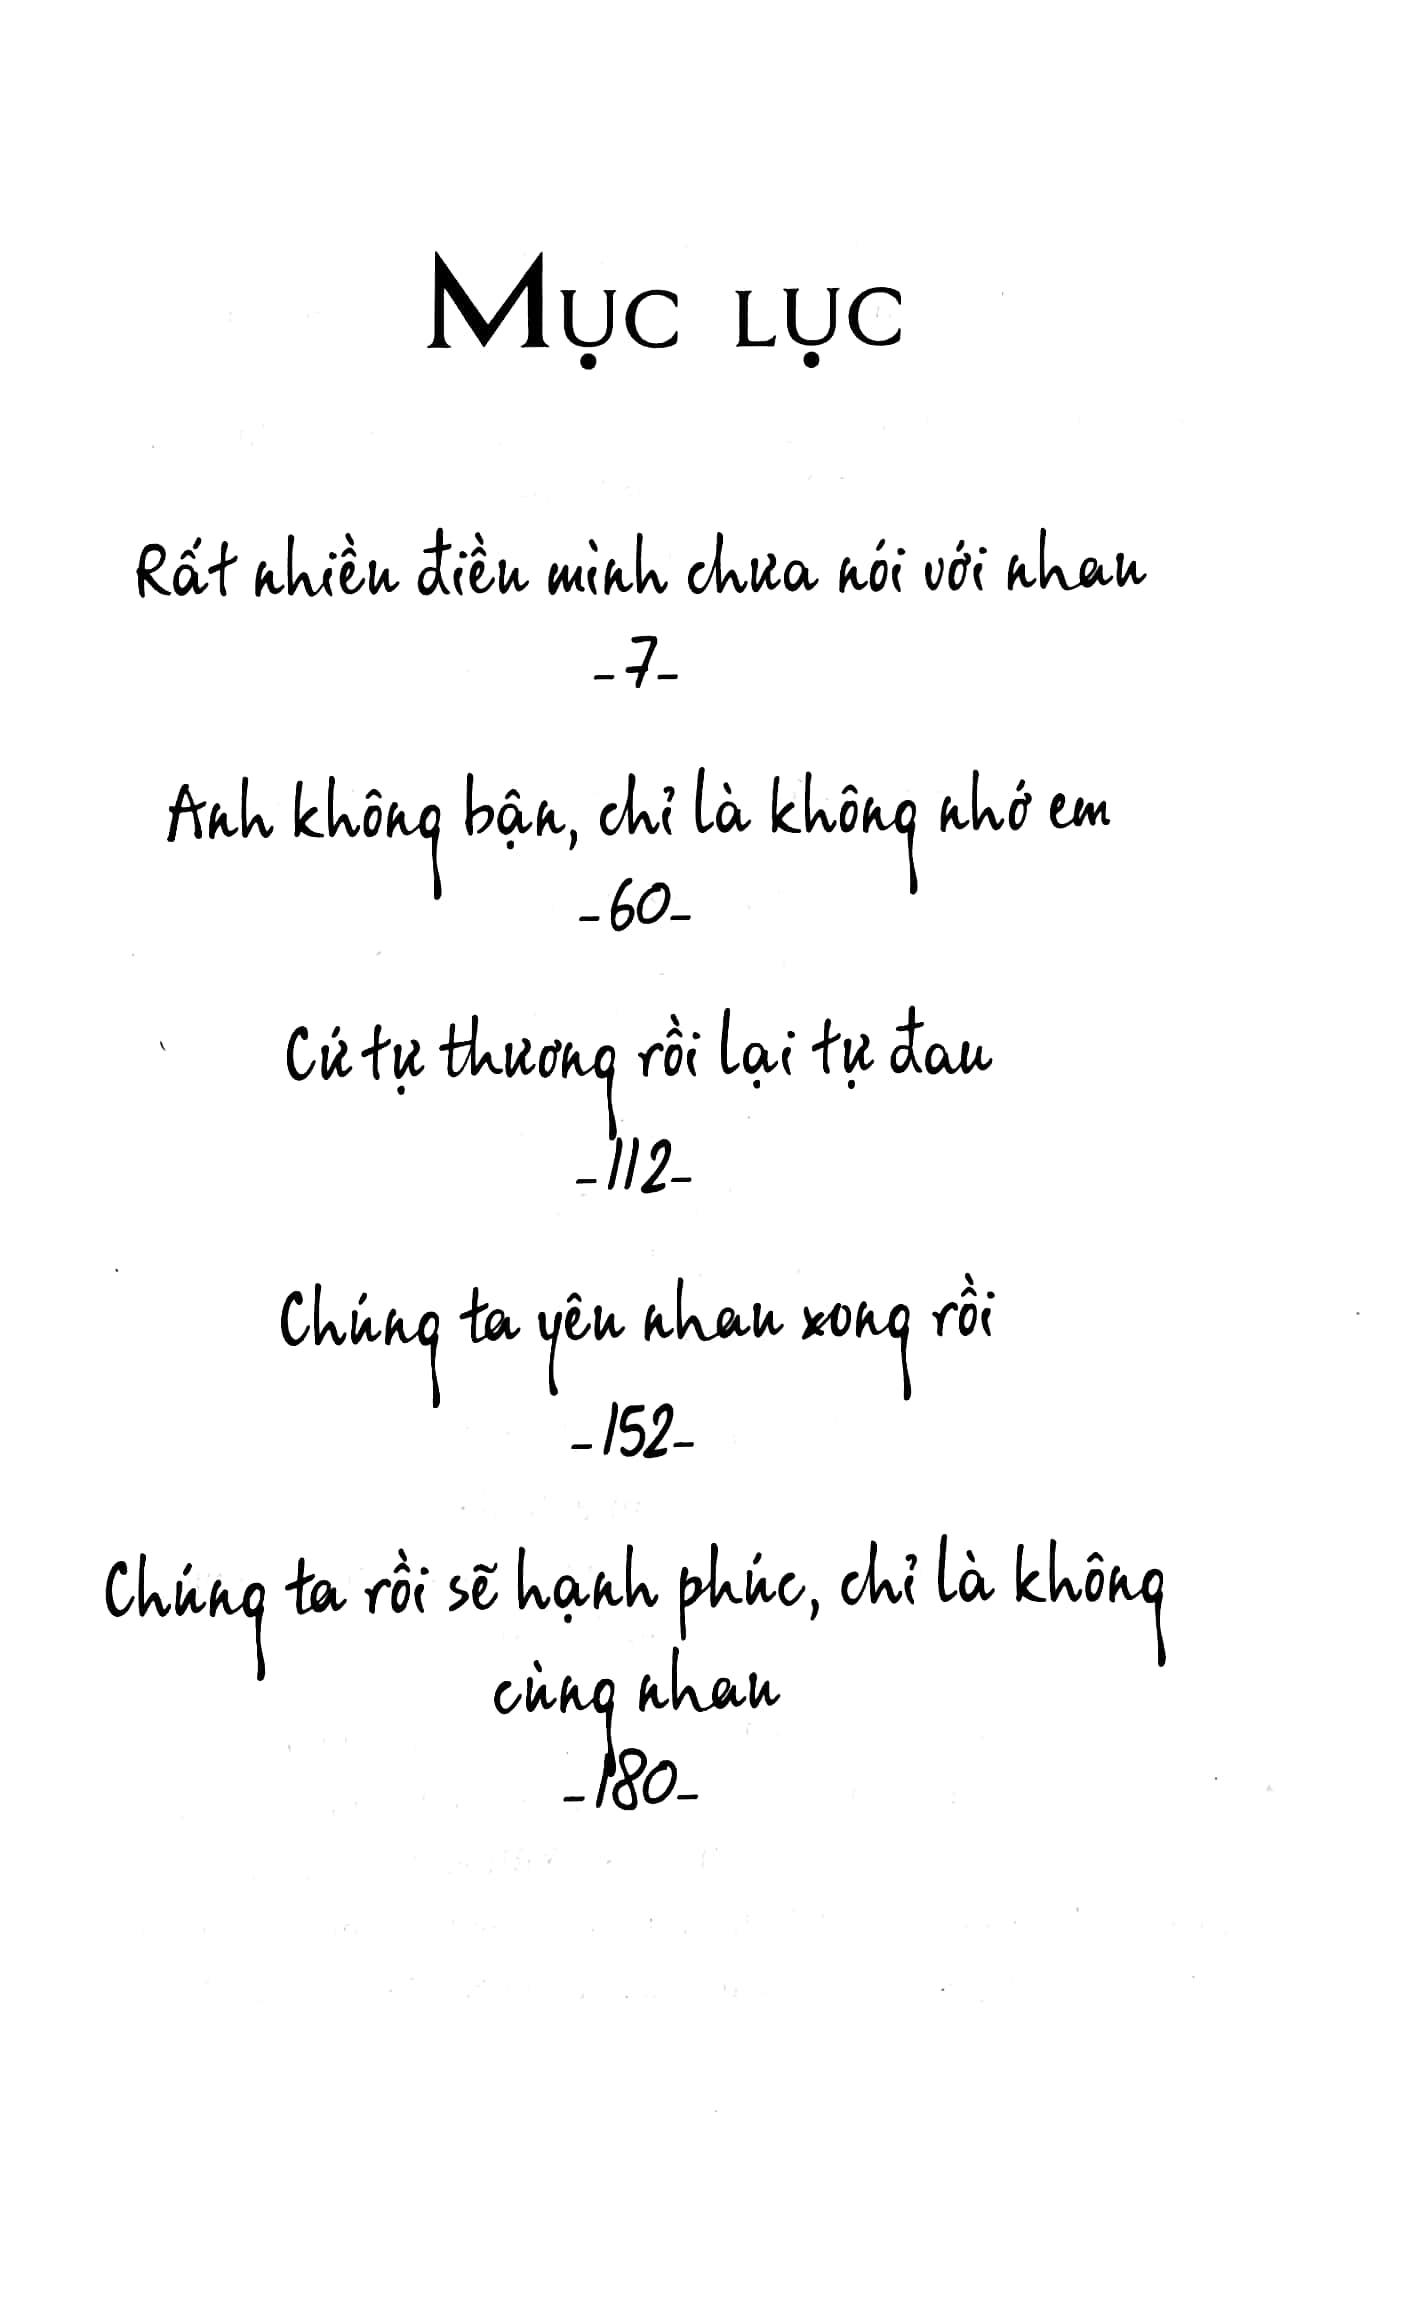 MỤC LỤC
Rất nhiều điều mình chưa nói với nhau
-7-
Anh không bận, chỉ là không nhớ em
-60-
Cứ tự thương rồi lại tự đau
-112-
Chúng ta yêu nhau xong rồi
-152-
Chúng ta rồi sẽ hạnh phúc, chỉ là không
cùng nhau
-180-